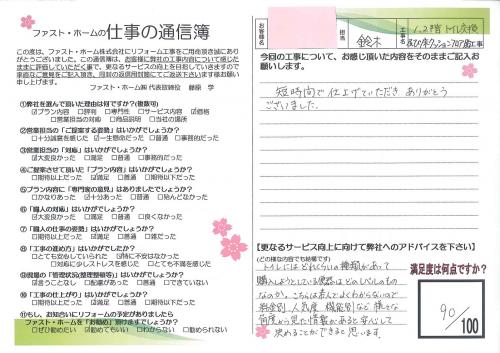 ファスト・ホームの仕事の通信簿
この度は、ファスト・ホーム株式会社にリフォーム工事をご用命頂き誠にあり
がとうございました。この通信簿は、お客様に弊社の工事内容について感じた
ままに評価していただく事で、更なるサービスの向上を目指していきますので
率直なご意見をご記入頂き、同封の返信用封筒にてご返送下さいます様お願い
申し上げます。
ファスト・ホーム㈱ 代表取締役 藤原 学
①弊社を選んで頂いた理由は何ですか?(複数可)
プラン内容 □評判 □専門性 □サービス内容 価格
□営業担当の対応 □商品説明 □当社の場所
②営業担当の「ご提案する姿勢」はいかがでしたか?
□十分誠意を感じた 一生懸命だった □普通 □事務的だった
③営業担当の「対応」はいかがでしたか?
大変良かった □満足 □普通 □事務的だった
④ご提案させて頂いた「プラン内容」はいかがでしたか?
□期待以上だった 満足 □普通 □期待以下だった
⑤プラン内容に「専門家の意見」はありましたか?
□かなりあった 十分あった □普通 □殆んどなかった
⑥「職人の対応」はいかがでしょうか?
大変良かった □満足 □普通 □良くなかった
⑦「職人の仕事の姿勢」はいかがでしょうか?
□期待以上だった 満足 □普通 □雑だった
⑧「工事の進めかた」はいかがでしたか?
□とても安心していられた 特に不安はなかった
□対応に少しストレスを感じた □とても不満を感じた
⑨現場の「管理状況(整理整頓等)」はいかがでしたか?
□言うことなし □配慮があった 普通 □悪い
⑩「工事の仕上がり」はいかがでしょうか?
□期待以上だった 満足 □普通 □期待以下だった
⑪もし、お知り合いにリフォームの予定がありましたら
ファスト・ホームを「お勧め」頂けますでしょうか?
□ぜひ勧めたい 勧めてもいい □わからない □勧められない
お客様名
担当
鈴木
工事名
1.2階 トイレ交換
及び床クッションフロア施工事
今回の工事について、お感じ頂いた内容をそのままご記入お
願いします。
短時間で仕上げていただき ありがとう
ございました。
【更なるサービス向上に向けて弊社へのアドバイスを下さい】
(どの様な内容でも結構です)
トイレにはどれくらいの種類があって
購入しようとしている便器はどのレベルのもの
なのか。こちらは素人でよくわからないので
料金別、人気度、機能別など様々な
角度から見た情報があると安心して
決めることができると思います。
満足度は何点ですか?
90
/100